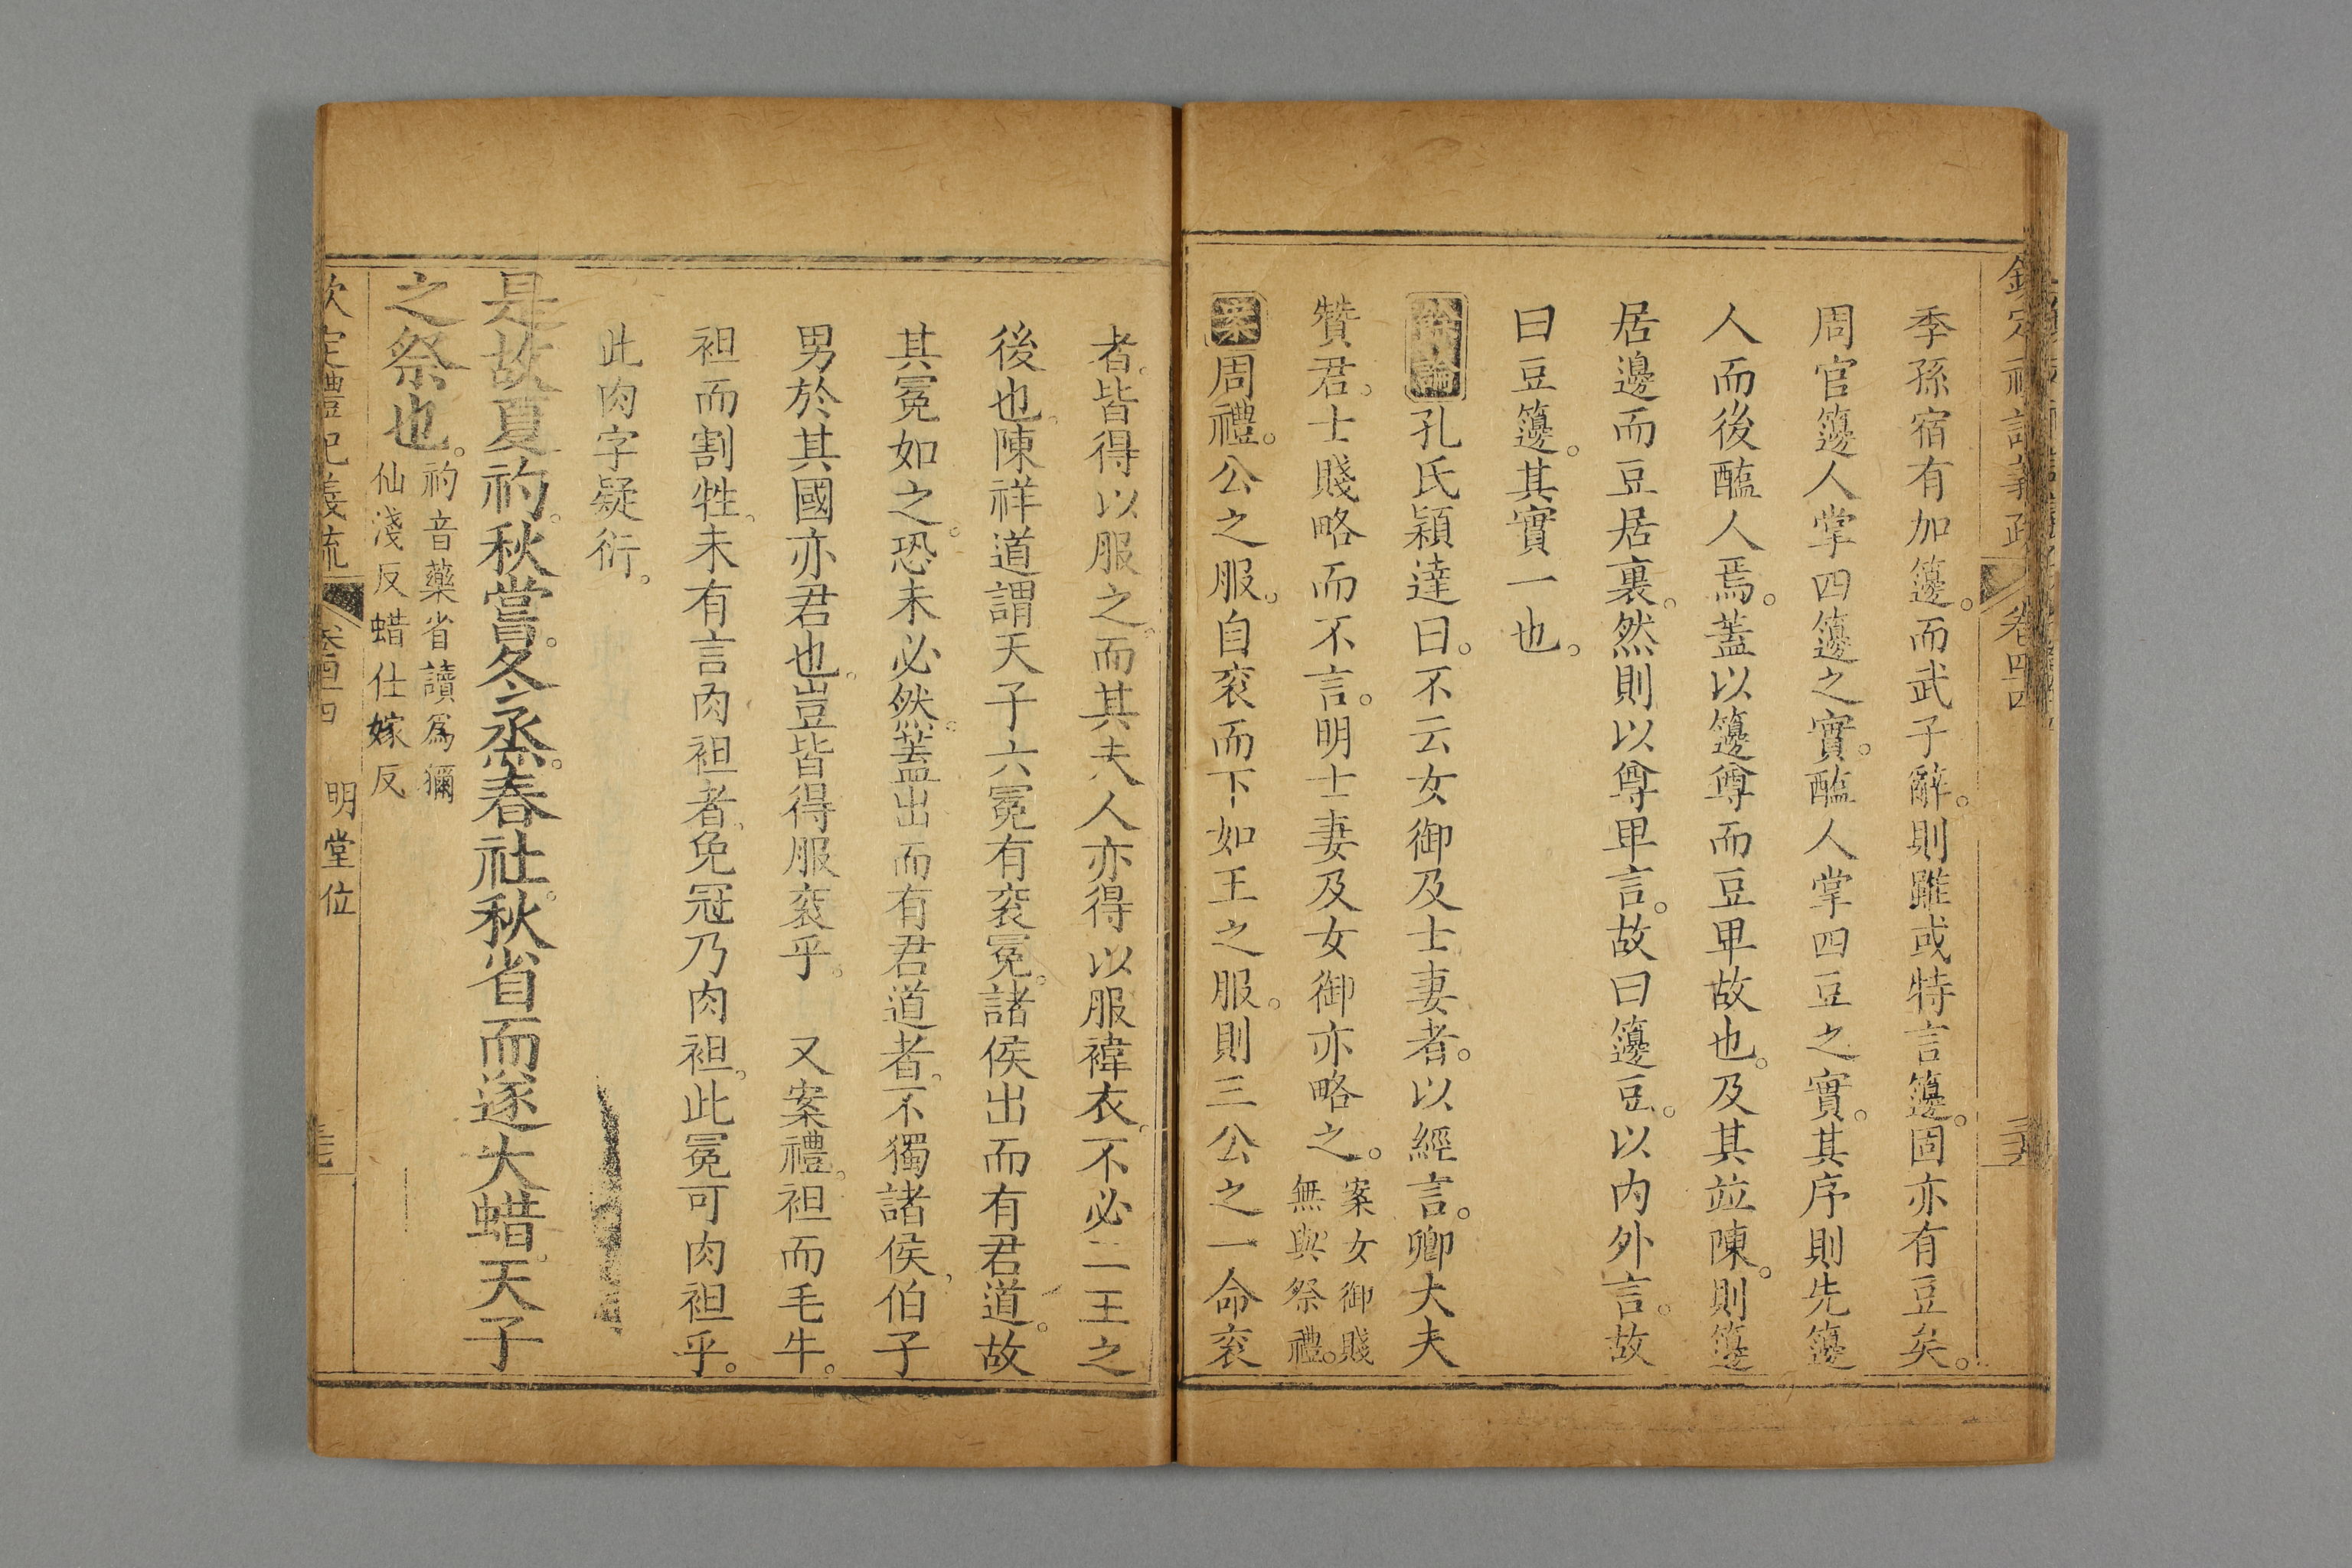 季孫宿有加籩。而武子辭。則雖或特言籩。固亦有豆矣。
周官籩人掌四籩之實。醢人掌四豆之實。其序則先籩
人而後醢人焉。蓋以籩尊而豆卑故也。及其竝陳。則籩
居邊而豆居裏。然則以尊卑言。故曰籩豆。以內外言。故
曰豆籩。其實一也。
孔氏穎達曰。不云女御及士妻者。以經言。卿大夫
贊君。士賤略而不言。明士妻及女御亦略之。案女御賤
無與祭禮。
案周禮。公之服。自袞而下如王之服。則三公之一命袞
者。皆得以服之。而其夫人亦得以服褘衣。不必二王之
後也。陳祥道謂天子六冕有袞冕。諸侯出而有君道。故
其冕如之。恐未必然。蓋出而有君道者。不獨諸侯。伯子
男於其國亦君也。豈皆得服袞乎。 又案禮。袒而毛牛。
袒而割牲。未有言肉袒者。免冠乃肉袒。此冕可肉袒乎。
此肉字疑衍。
是故夏礿。秋嘗。冬烝。春社。秋省而遂大蜡。天子
之祭也。礿音藥省讀爲獮
仙淺反蜡仕嫁反
明堂位